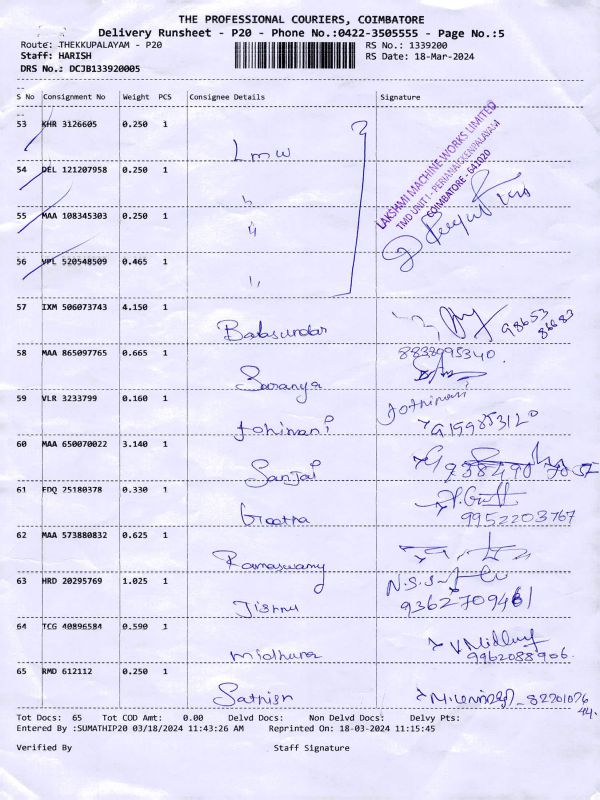 THE PROFESSIONAL COURIERS, COIMBATORE
Delivery Runsheet - P20 - Phone No.:0422-3505555 - Page No.:5
Route: THEKKUPALAYAM - P20 RS No.: 1339200
Staff: HARISH RS Date: 18-Mar-2024
DRS No.: DCJB133920005
S No Consignment No Weight PCS Consignee Details Signature
53 KHR 3126605 0.250 1 Lmw
LAKSHMI MACHINE WORKS LIMITED
TMD UNIT I - PERIANAICKENPALAYAM
COIMBATORE - 641020
54 DEL 121207958 0.250 1 "
55 MAA 108345303 0.250 1 "
56 VPL 520548509 0.465 1 "
57 IXM 506073743 4.150 1 Balasundar 98653 86683
58 MAA 865097765 0.665 1 Saranya 8838995340
59 VLR 3233799 0.160 1 Johimani Jothimani
60 MAA 650070022 3.140 1 Sanjai
61 EDQ 25180378 0.330 1 Geetha 9952203767
62 MAA 573880832 0.625 1 Ramaswamy
63 HRD 20295769 1.025 1 Jishnu 9362709461
64 TCG 40896584 0.590 1 Midhuna 9962088906
65 RMD 612112 0.250 1 Sathish
Tot Docs: 65 Tot COD Amt: 0.00 Delvd Docs: Non Delvd Docs: Delvy Pts:
Entered By :SUMATHIP20 03/18/2024 11:43:26 AM Reprinted On: 18-03-2024 11:15:45
Verified By Staff Signature